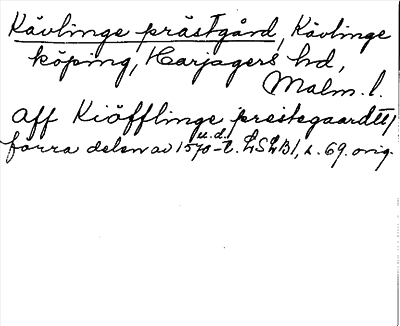 Kävlinge prästgård, Kävlinge
köping, Harjagers hd,
Malm. l.
aff Kiöfflinge prestegaard
u.d.
förra delen av 1570-t. LSLB1, s. 69. orig.